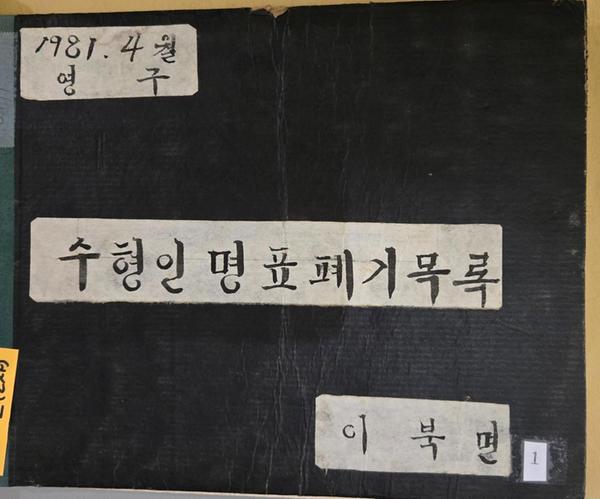 1981. 4월
영 구
수형인명표폐기목록
이북면
1